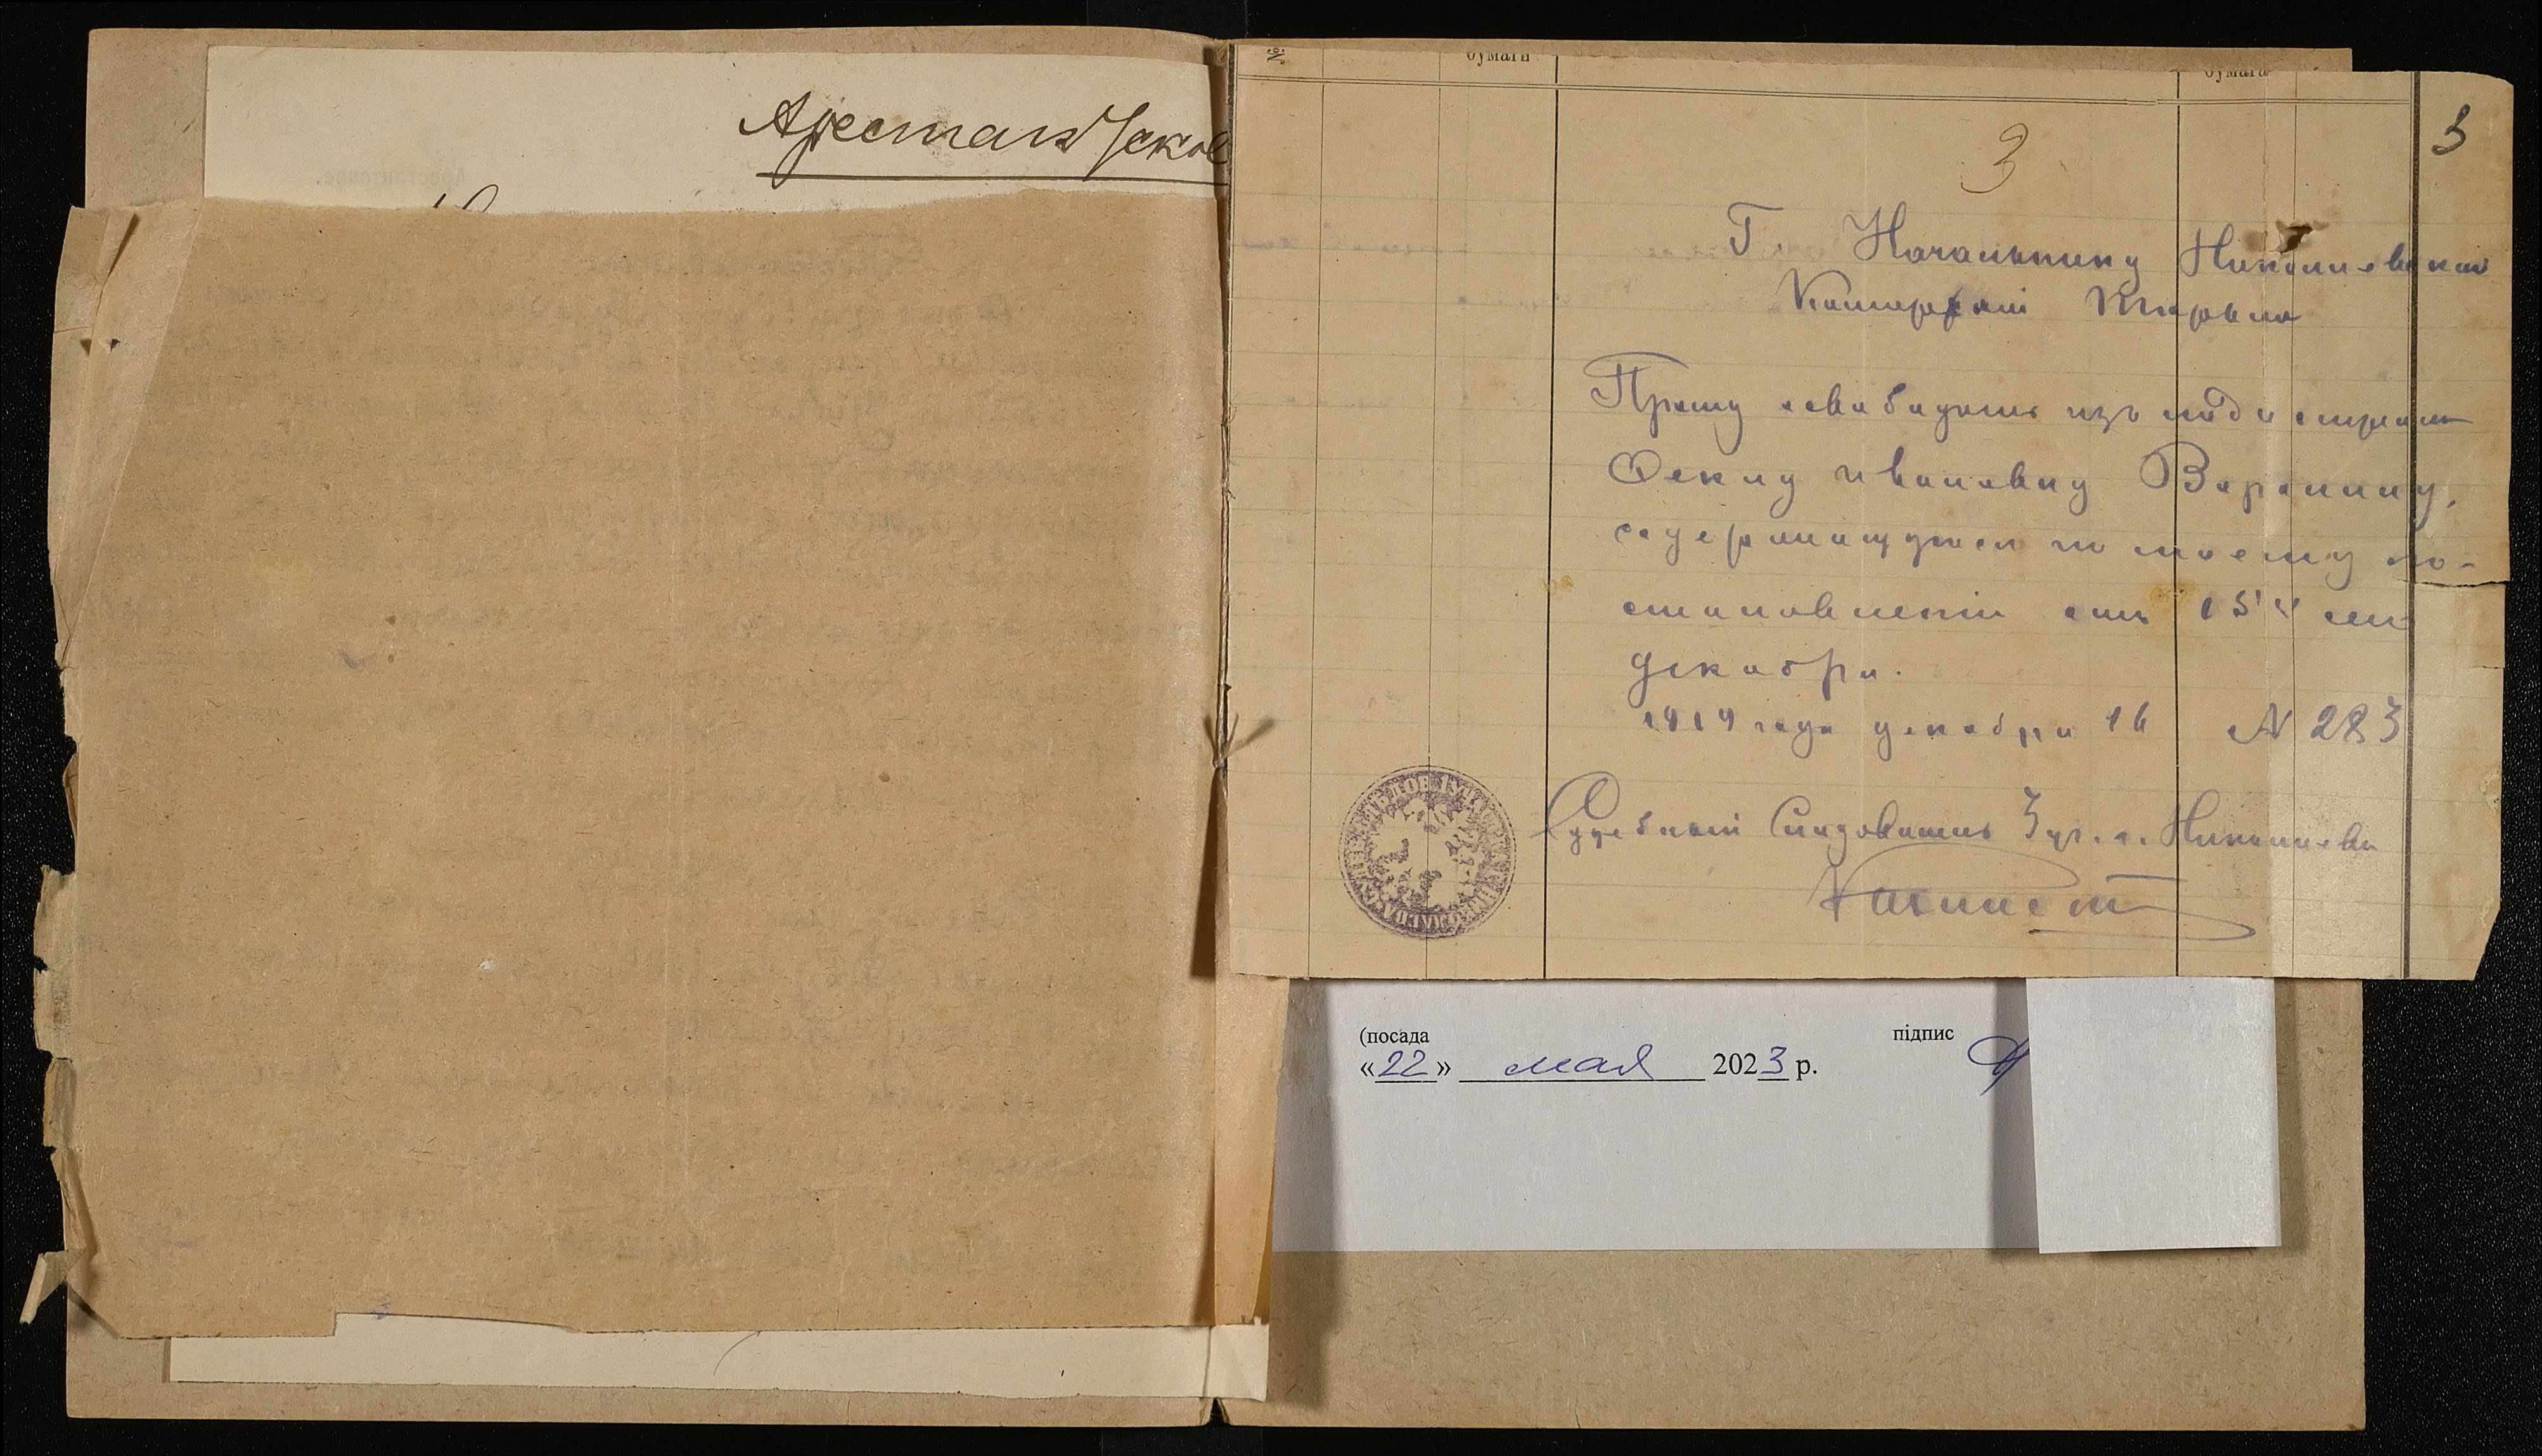 Арестант
№
бумаги
бумаги
3
3
Г. Начальнику Николаевской
Каторжной Тюрьмы
Прошу освободить изъ под стражи
Феклу Ивановну Воронину,
содержащуюся по моему по-
становленію отъ 15 сего
декабря.
1919 года декабря 16 № 283
Судебный Следователь 3 уч. г. Николаева
(посада
підпис
«22» мая 2023 р.